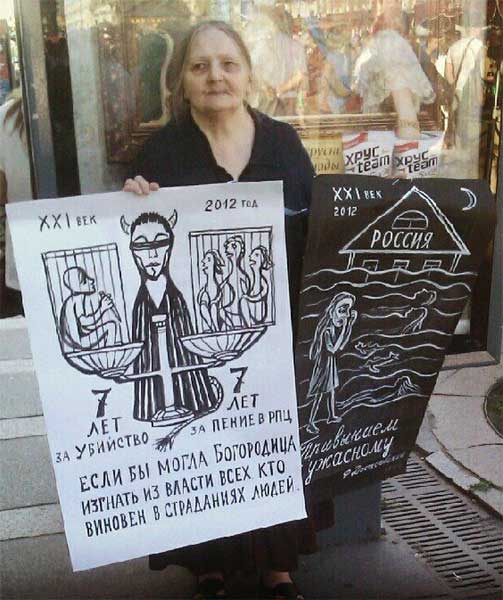 XXI ВЕК
2012 ГОД
7 ЛЕТ
ЗА УБИЙСТВО
7 ЛЕТ
ЗА ПЕНИЕ В РПЦ
ЕСЛИ БЫ МОГЛА БОГОРОДИЦА
ИЗГНАТЬ ИЗ ВЛАСТИ ВСЕХ КТО
ВИНОВЕН В СТРАДАНИЯХ ЛЮДЕЙ.
XXI ВЕК
2012
РОССИЯ
Привыкнем
к ужасному
ХРУС
team
ХРУС
team